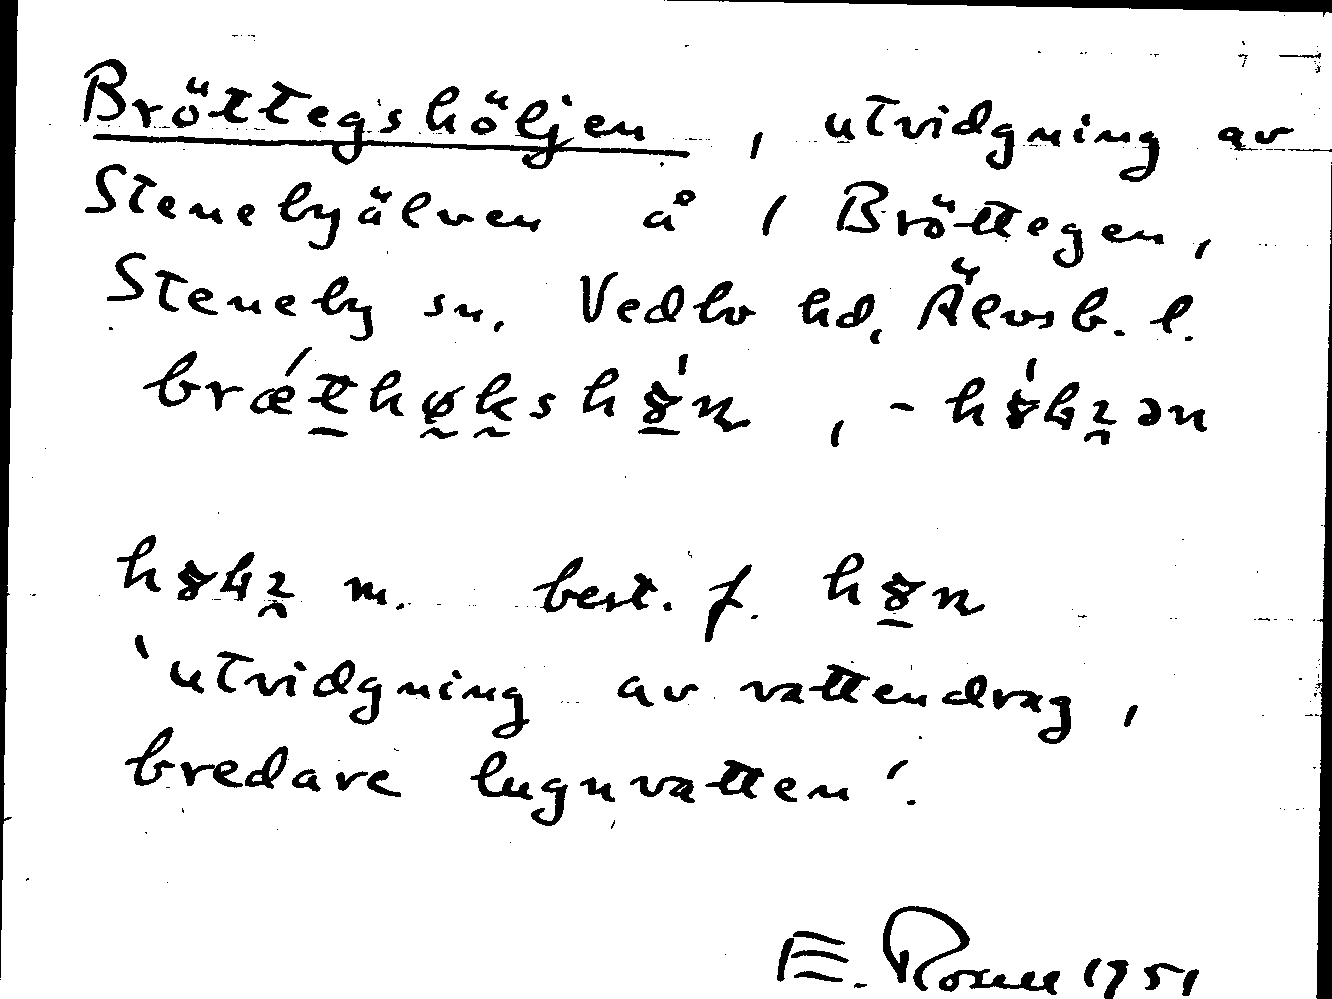 Bröttegshöljen, utvidgning av
Stenebyälven å / Bröttegen,
Steneby sn, Vedbo hd, Älvsb. l.
m. best. f.
'utvidgning av vattendrag,
bredare lugnvatten'.
E. Rosell 1951